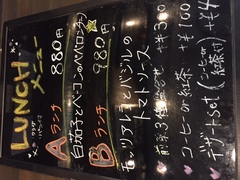 LUNCH
メニュー
Aランチ 880円
白茄子とベーコンのペペロンチーノ
Bランチ 980円
モッツァレラとバジルの
トマトソース
前菜3種盛
コーヒー or 紅茶 +¥100
デザートSet (コーヒー or 紅茶付) +¥4